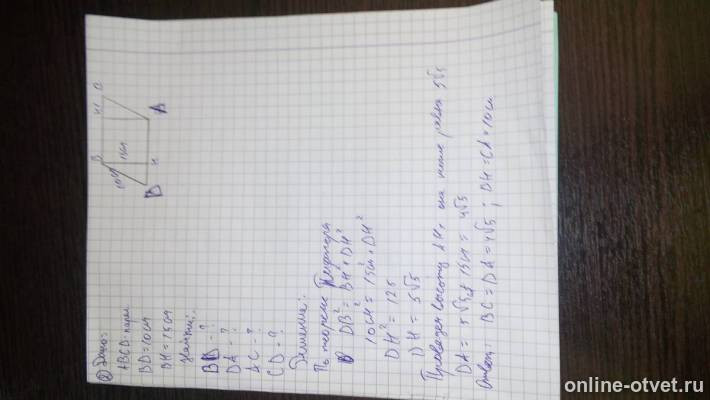 ② Дано:
ABCD - парал.
BD = 10 см
BH = 15 см
Найти:
BD - ?
DA - ?
AC - ?
CD = ?
Решение:
По теореме Пифагора
DB² = BH² + DH²
10 см² = 15 см² + DH²
DH² = 125
DH = 5√5
Проведем высоту AH₁ она тоже равна 5√5
DA = 5√5 15 см = 4√5
Ответ: BC = DA = 4√5 ; DH = CA = 10 см
B
H
D
10 см
15 см
A
online-otvet.ru